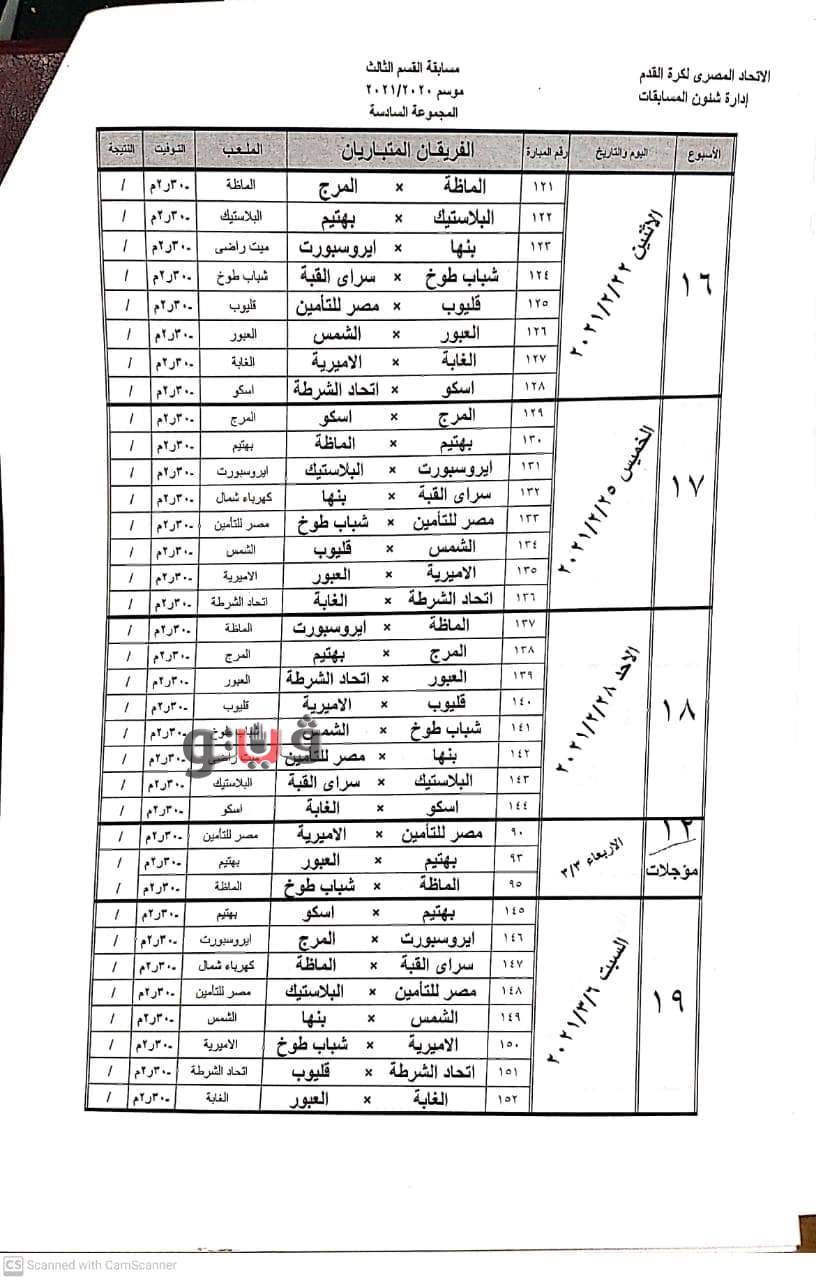 الاتحاد المصرى لكرة القدم
إدارة شئون المسابقات
مسابقة القسم الثالث
موسم ٢٠٢١/٢٠٢٠
المجموعة السادسة
الأسبوع اليوم والتاريخ رقم المباراة الفريقان المتباريان الملعب التوقيت النتيجة
١٦ الاثنين ٢٠٢١/٢/٢٢
١٢١ الماظة × المرج الماظة ٢٫٣٠م /
١٢٢ البلاستيك × بهتيم البلاستيك ٢٫٣٠م /
١٢٣ بنها × ايروسبورت ميت راضى ٢٫٣٠م /
١٢٤ شباب طوخ × سراى القبة شباب طوخ ٢٫٣٠م /
١٢٥ قليوب × مصر للتأمين قليوب ٢٫٣٠م /
١٢٦ العبور × الشمس العبور ٢٫٣٠م /
١٢٧ الغابة × الاميرية الغابة ٢٫٣٠م /
١٢٨ اسكو × اتحاد الشرطة اسكو ٢٫٣٠م /
١٧ الخميس ٢٠٢١/٢/٢٥
١٢٩ المرج × اسكو المرج ٢٫٣٠م /
١٣٠ بهتيم × الماظة بهتيم ٢٫٣٠م /
١٣١ ايروسبورت × البلاستيك ايروسبورت ٢٫٣٠م /
١٣٢ سراى القبة × بنها كهرباء شمال ٢٫٣٠م /
١٣٣ مصر للتأمين × شباب طوخ مصر للتأمين ٢٫٣٠م /
١٣٤ الشمس × قليوب الشمس ٢٫٣٠م /
١٣٥ الاميرية × العبور الاميرية ٢٫٣٠م /
١٣٦ اتحاد الشرطة × الغابة اتحاد الشرطة ٢٫٣٠م /
١٨ الاحد ٢٠٢١/٢/٢٨
١٣٧ الماظة × ايروسبورت الماظة ٢٫٣٠م /
١٣٨ المرج × بهتيم المرج ٢٫٣٠م /
١٣٩ العبور × اتحاد الشرطة العبور ٢٫٣٠م /
١٤٠ قليوب × الاميرية قليوب ٢٫٣٠م /
١٤١ شباب طوخ × الشمس شباب طوخ ٢٫٣٠م /
١٤٢ بنها × مصر للتأمين ميت راضى ٢٫٣٠م /
١٤٣ البلاستيك × سراى القبة البلاستيك ٢٫٣٠م /
١٤٤ اسكو × الغابة اسكو ٢٫٣٠م /
ڤيتو
١٢ مؤجلات الاربعاء ٣/٣
٩٠ مصر للتأمين × الاميرية مصر للتأمين ٢٫٣٠م /
٩٣ بهتيم × العبور بهتيم ٢٫٣٠م /
٩٥ الماظة × شباب طوخ الماظة ٢٫٣٠م /
١٩ السبت ٢٠٢١/٣/٦
١٤٥ بهتيم × اسكو بهتيم ٢٫٣٠م /
١٤٦ ايروسبورت × المرج ايروسبورت ٢٫٣٠م /
١٤٧ سراى القبة × الماظة كهرباء شمال ٢٫٣٠م /
١٤٨ مصر للتأمين × البلاستيك مصر للتأمين ٢٫٣٠م /
١٤٩ الشمس × بنها الشمس ٢٫٣٠م /
١٥٠ الاميرية × شباب طوخ الاميرية ٢٫٣٠م /
١٥١ اتحاد الشرطة × قليوب اتحاد الشرطة ٢٫٣٠م /
١٥٢ الغابة × العبور الغابة ٢٫٣٠م /
CS Scanned with CamScanner